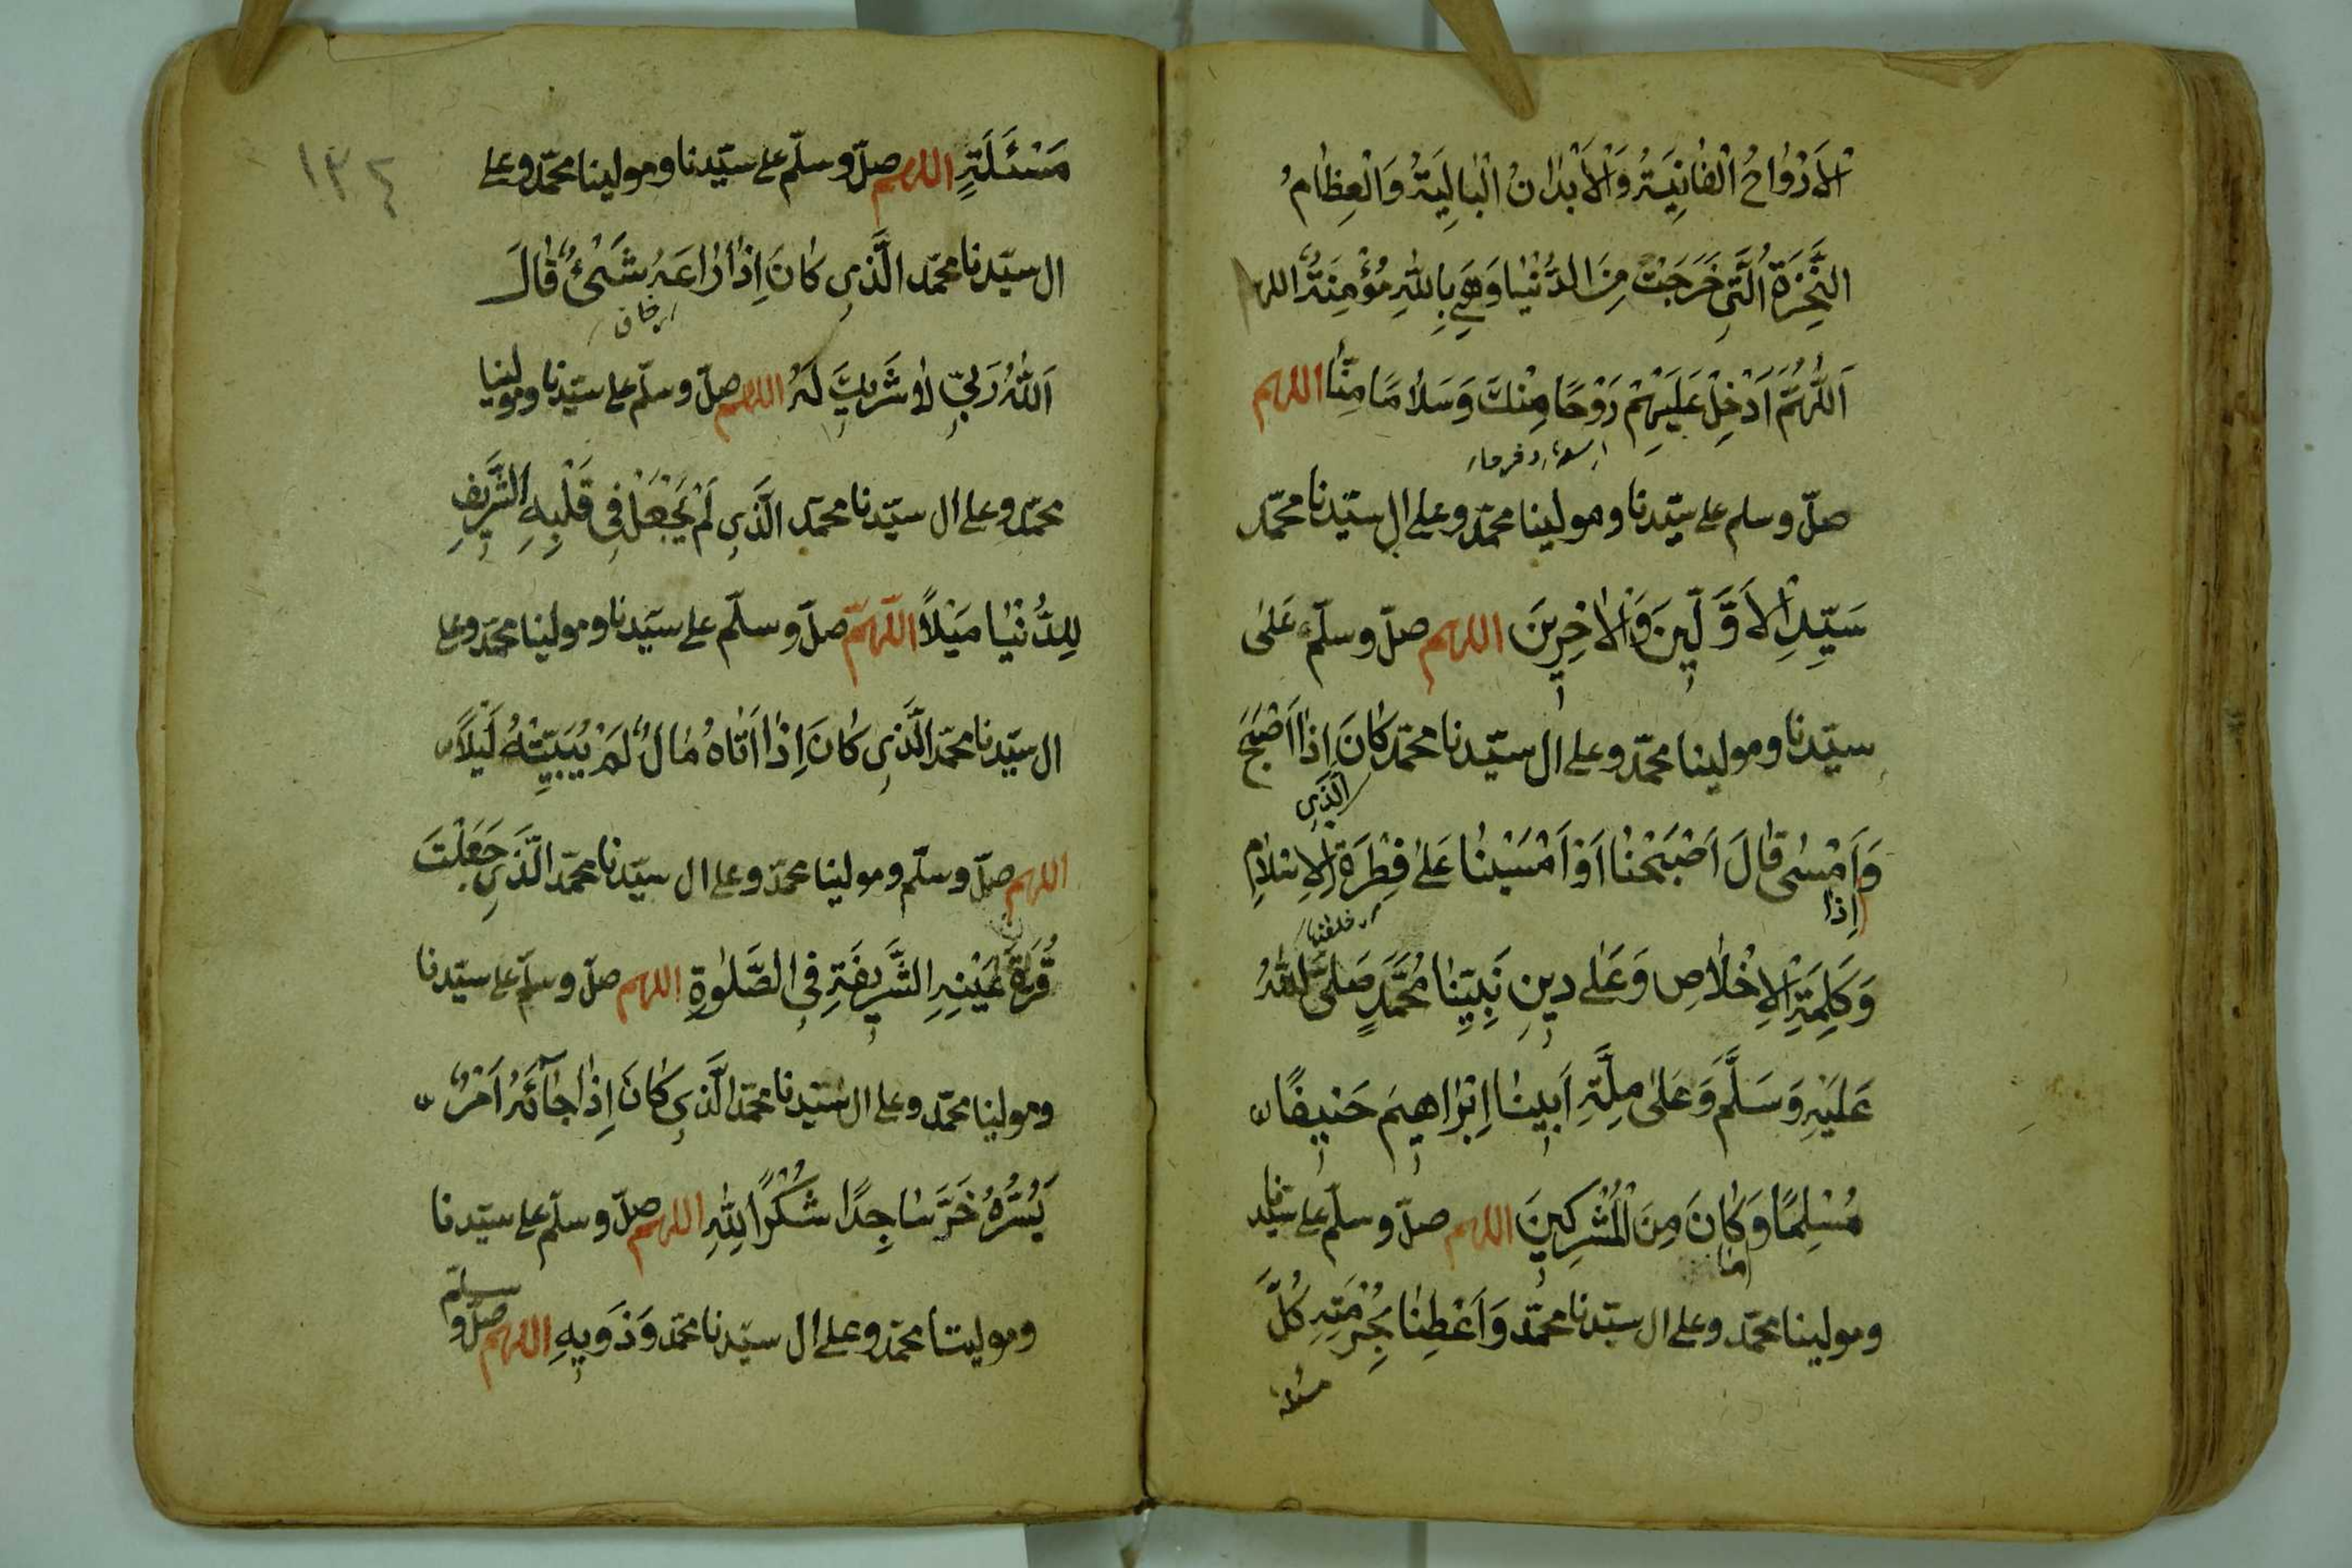 اَلْاَرْوَاحُ الْفَانِيَةُ وَالْاَبْدَانُ الْبَالِيَةُ وَالْعِظَامُ
النَّخِرَةُ الَّتِى خَرَجَتْ مِنَ الدُّنْيَا وَهِىَ بِاللهِ مُؤْمِنَةٌ اللهم
اَللّٰهُمَّ اَدْخِلْ عَلَيْهِمْ رَوْحًا مِنْكَ وَسَلَامًا مِنَّا اللهم
صلّ وسلم على سيّدنا ومولينا محمّد وعلى ال سيّدنا محمّد
سَيِّدِ الْاَوَّلِينَ وَالْاٰخِرِينَ اللهم صلّ وسلّم عَلٰى
سيّدنا ومولينا محمّد وعلى ال سيّدنا محمّد كَانَ اِذَا اَصْبَحَ
الَّذِى
وَاَمْسٰى قَالَ اَصْبَحْنَا اَوْ اَمْسَيْنَا عَلٰى فِطْرَةِ الْاِسْلَامِ
اِذَا
وَكَلِمَةِ الْاِخْلَاصِ وَعَلٰى دِينِ نَبِيِّنَا مُحَمَّدٍ صَلَّى اللهُ
عَلَيْهِ وَسَلَّمَ وَعَلٰى مِلَّةِ اَبِينَا اِبْرَاهِيمَ حَنِيفًا
مُسْلِمًا وَكَانَ مِنَ الْمُشْرِكِينَ اللهم صلّ وسلّم على سيّدنا
مَا
ومولينا محمّد وعلى ال سيّدنا محمّد وَاَعْطِنَا بِحُرْمَتِهِ كُلَّ
مسئلة
١٣٤
مَسْئَلَةٍ اللهم صلّ وسلّم على سيّدنا ومولينا محمّد وعلى
ال سيّدنا محمّد الَّذِى كَانَ اِذَا رَاعَهُ شَىْءٌ قَالَ
اى خاف
اَللهُ رَبِّى لَا شَرِيكَ لَهُ اللهم صلّ وسلّم على سيّدنا ومولينا
محمّد وعلى ال سيّدنا محمّد الَّذِى لَمْ يَجْعَلْ فِى قَلْبِهِ الشَّرِيفِ
لِلدُّنْيَا مَيْلًا اللّهمّ صلّ وسلّم على سيّدنا ومولينا محمّد وعلى
ال سيّدنا محمّد الَّذِى كَانَ اِذَا اَتَاهُ مَالٌ لَمْ يُبَيِّتْهُ لَيْلًا
اللهم صلّ وسلّم ومولينا محمّد وعلى ال سيّدنا محمّد الَّذِى جَعَلْتَ
قُرَّةَ عَيْنِهِ الشَّرِيفَةِ فِى الصَّلٰوةِ اللهم صلّ وسلّم على سيّدنا
ومولينا محمّد وعلى ال سيّدنا محمّد الَّذِى كَانَ اِذَا جَآئَهُ اَمْرٌ
يَسُرُّهُ خَرَّ سَاجِدًا شُكْرًا لِلّٰهِ اللهم صلّ وسلّم على سيّدنا
ومولينا محمّد وعلى ال سيّدنا محمّد وَذَوِيهِ اللهم صلّ وسلّم